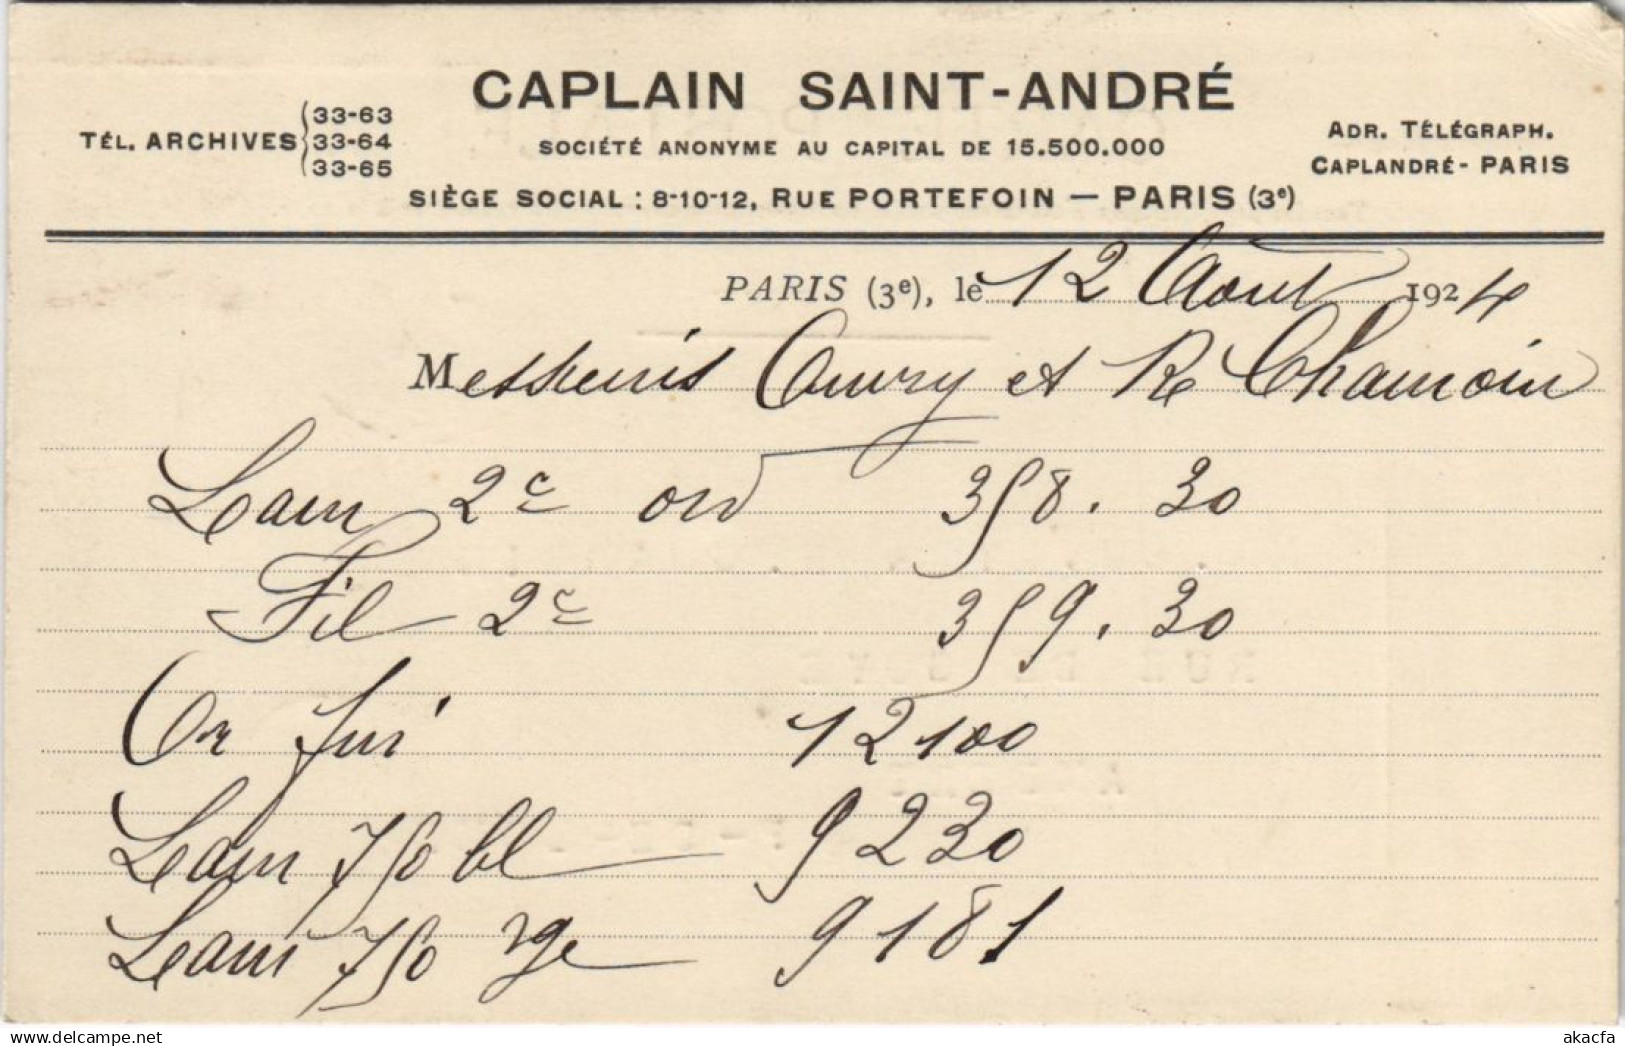 CAPLAIN SAINT-ANDRÉ
TÉL. ARCHIVES 33-63
33-64
33-65
SOCIÉTÉ ANONYME AU CAPITAL DE 15.500.000
ADR. TÉLÉGRAPH.
CAPLANDRÉ - PARIS
SIÈGE SOCIAL : 8-10-12, RUE PORTEFOIN — PARIS (3e)
PARIS (3e), le 12 Aout 1924
Messieurs et R Chamoin
Lam 2c or 358.30
Fil 2c 359.30
Or fin 12100
Lam 750 bl 9230
Lam 750 rge 9181
akacfa
www.delcampe.net